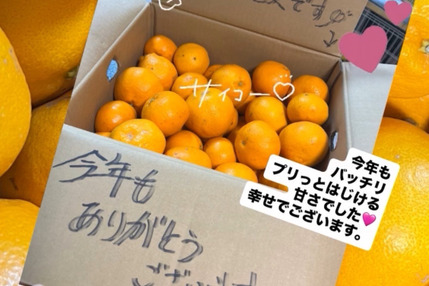 です
サイコー♡
今年も
バッチリ
プリっとはじける
甘さでした🩷
幸せでございます。
今年も
ありがとう